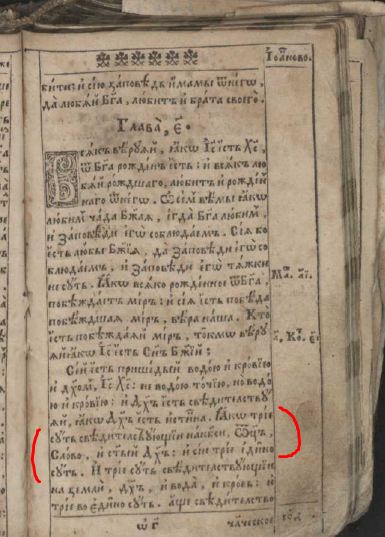 Їѡа́нново.
битез̾ и҆ сїю̀ за́повѣдь и҆́мамы ѿ нєгѡ̀,
да любѧ́й Бг҃а, лю́битъ и҆ бра́та своегѡ̀.
Глава̀, є҃.
Всѧ́къ вѣ́руѧй, ꙗ҆́кѡ І҆с҃ є҆́сть Хс҃,
ѿ Бг҃а рожде́нъ є҆́сть: и҆ всѧ́къ лю
бѧ́й ро́ждшаго, лю́битъ и҆ рожде́н
наго ѿ нєгѡ̀. Ѡ се́мъ вѣ́мы ꙗ҆́кѡ
лю́бимъ ча́да Бж҃їѧ, є҆гда̀ Бг҃а лю́бим,
и҆ за́повѣди є҆гѡ̀ соблюда́емъ. Сїѧ́ бо
є҆сть любы̀ Бж҃їѧ, да за́повѣди є҆гѡ̀ со
блюда́емъ, и҆ за́повѣди є҆гѡ̀ тѧ́жки
не су́ть. Ꙗ҆́кѡ всѧ́ко рожде́нное ѿ Бг҃а
побѣжда́етъ мі́ръ: и҆ сїѧ̀ є҆́сть побѣ́да
побѣ́ждшаѧ мі́ръ, вѣ́ра на́ша. Кто̀
є҆́сть побѣжда́ѧй мі́ръ, то́кмѡ вѣ́ру
ѧй ꙗ҆́кѡ І҆с҃ є҆́сть Сн҃ъ Бж҃їй:
Се́й є҆́сть прише́дый водо́ю и҆ кро́вїю
и҆ дх҃омъ, І҆с҃ Хс҃: не водо́ю то́чїю, но водо́
ю и҆ кро́вїю: и҆ Дх҃ъ є҆́сть свѣдѣ́тельствꙋ
ѧй, ꙗ҆́кѡ Дх҃ъ є҆́сть и҆́стина. Ꙗ҆́кѡ трїѐ
су́ть свѣдѣ́тельствующїи на нб҃си, Ѻ҆ц҃ъ,
Сло́во, и҆ ст҃ы́й Дх҃ъ: и҆ сїѝ трїѐ є҆ди́но
су́ть. И҆ трїѐ су́ть свѣдѣ́тельствующїи
на землѝ, дх҃ъ, и҆ вода̀, и҆ кро́вь: и҆
трїѐ во є҆ди́но су́ть. а҆́ще свѣдѣ́тельство
ч҃лческое